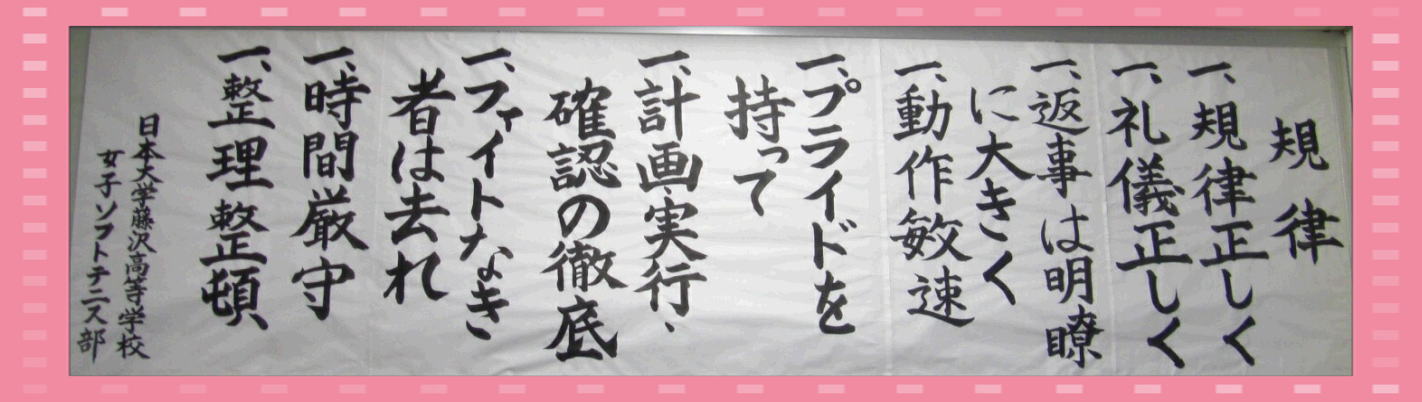 規律
一、規律正しく
一、礼儀正しく
一、返事は明瞭
に大きく
一、動作敏速
一、プライドを
持って
一、計画、実行、
確認の徹底
一、ファイトなき
者は去れ
一、時間厳守
一、整理整頓
日本大学藤沢高等学校
女子ソフトテニス部